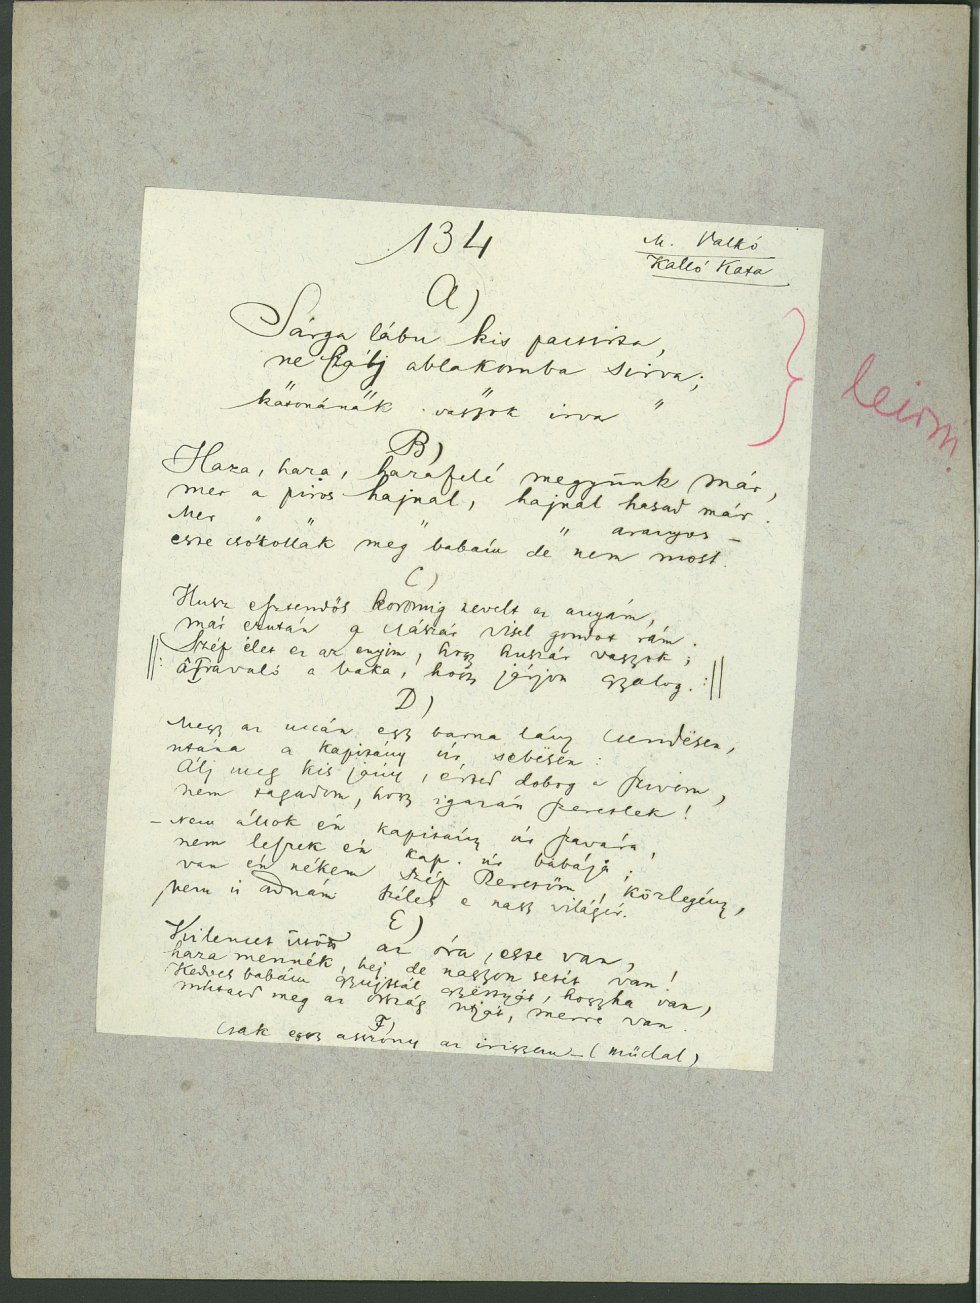 134
M. Valkó
Kalló Kata
A)
Sárga lábu kis pacsirta,
ne szálj ablakomba sirva;
katonának vagyok irva "
leirni
B)
Haza, haza, hazafelé megyünk már,
mer a piros hajnal, hajnal hasad már.
Mer " " " " aranyos –
este csókollak még babám de nem most.
C)
Husz esztendős koromig nevelt az anyám,
már ezután a császár visel gondot rám.
||: Szép élet ez az enyim, hogy huszár vagyok;
átravaló a baka, hogy járjon gyalog. :||
D)
Megy az uccán egy barna lány csendësen,
utána a kapitány úr sebësen:
Álj meg kis jány, érted dobog a szivem,
nem tagadom, hogy igazán szeretlek!
– Nem állok én kapitány úr szavára,
nem leszek én kap. úr babája;
van én nékem szép szeretőm, közlegény,
nem is adnám széles e nagy világér.
E)
Kilencet ütött az óra, este van,
haza mennék, hej de nagyon setét van!
Kedves babám gyujtsál gyërtyát, hogyha van,
mutasd meg az ország utját, merre van.
F)
Csak egy asszony az irigyem – (műdal)